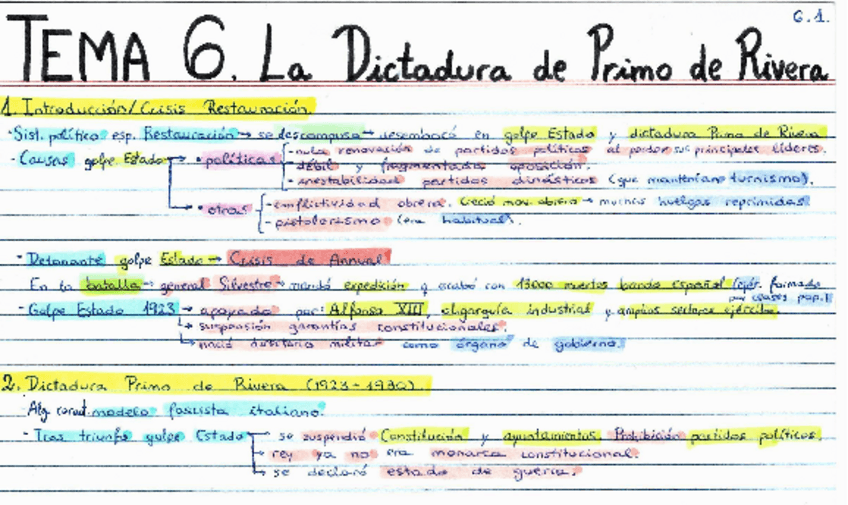 6.1.
TEMA 6. La Dictadura de Primo de Rivera
1. Introducción/Crisis Restauración.
- Sist. político esp. Restauración → se descompuso → desembocó en golpe Estado y dictadura Primo de Rivera
- Causas golpe Estado → • políticas - nula renovación de partidos políticos al perder sus principales líderes.
- débil y fragmentada oposición.
- inestabilidad partidos dinásticos (que mantenían turnismo).
• otras - conflictividad obrera. Creció mov. obrero → muchas huelgas reprimidas
- pistolerismo (era habitual).
- Detonante golpe Estado → Crisis de Annual
En la batalla → general Silvestre → mandó expedición y acabó con 13000 muertos bando español (ejér. formado por clases pop.)
- Golpe Estado 1923 → apoyado por: Alfonso XIII, oligarquía industrial y amplios sectores ejército.
↳ suspensión garantías constitucionales.
↳ nació directorio militar como órgano de gobierno.
2. Dictadura Primo de Rivera (1923-1930).
- Alg. caract. modelo fascista italiano.
- Tras triunfo golpe Estado → se suspendió Constitución y ayuntamientos. Prohibición partidos políticos.
→ rey ya no era monarca constitucional.
→ se declaró estado de guerra.